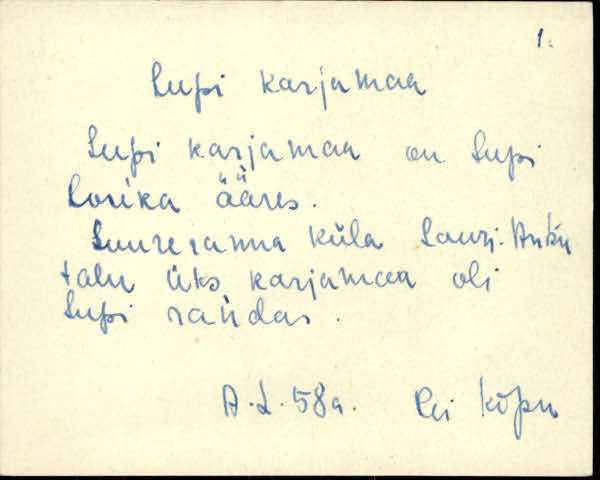 1.
Supi karjamaa
Supi karjamaa on Supi
Lorika ääres.
Suureranna küla Lauri-Antsu
talu üks karjamaa oli
Supi randas.
A.L. 58a. Rei Kõpu